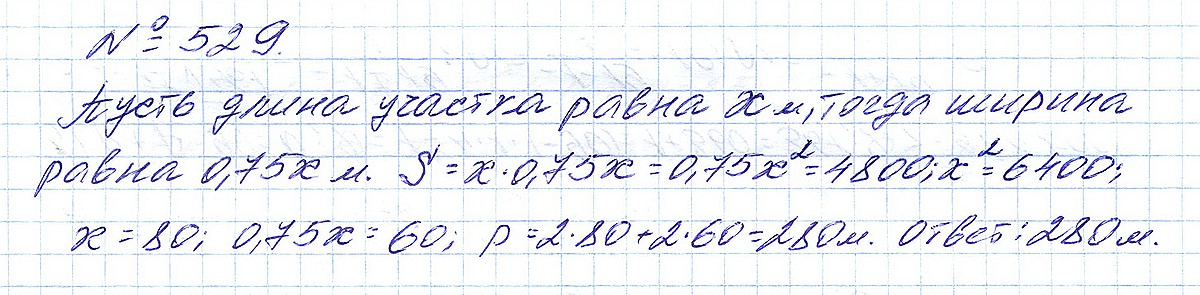 № 529.
Пусть длина участка равна x м, тогда ширина
равна 0,75x м. S = x·0,75x = 0,75x² = 4800; x² = 6400;
x = 80; 0,75x = 60; p = 2·80 + 2·60 = 280 м. Ответ: 280 м.